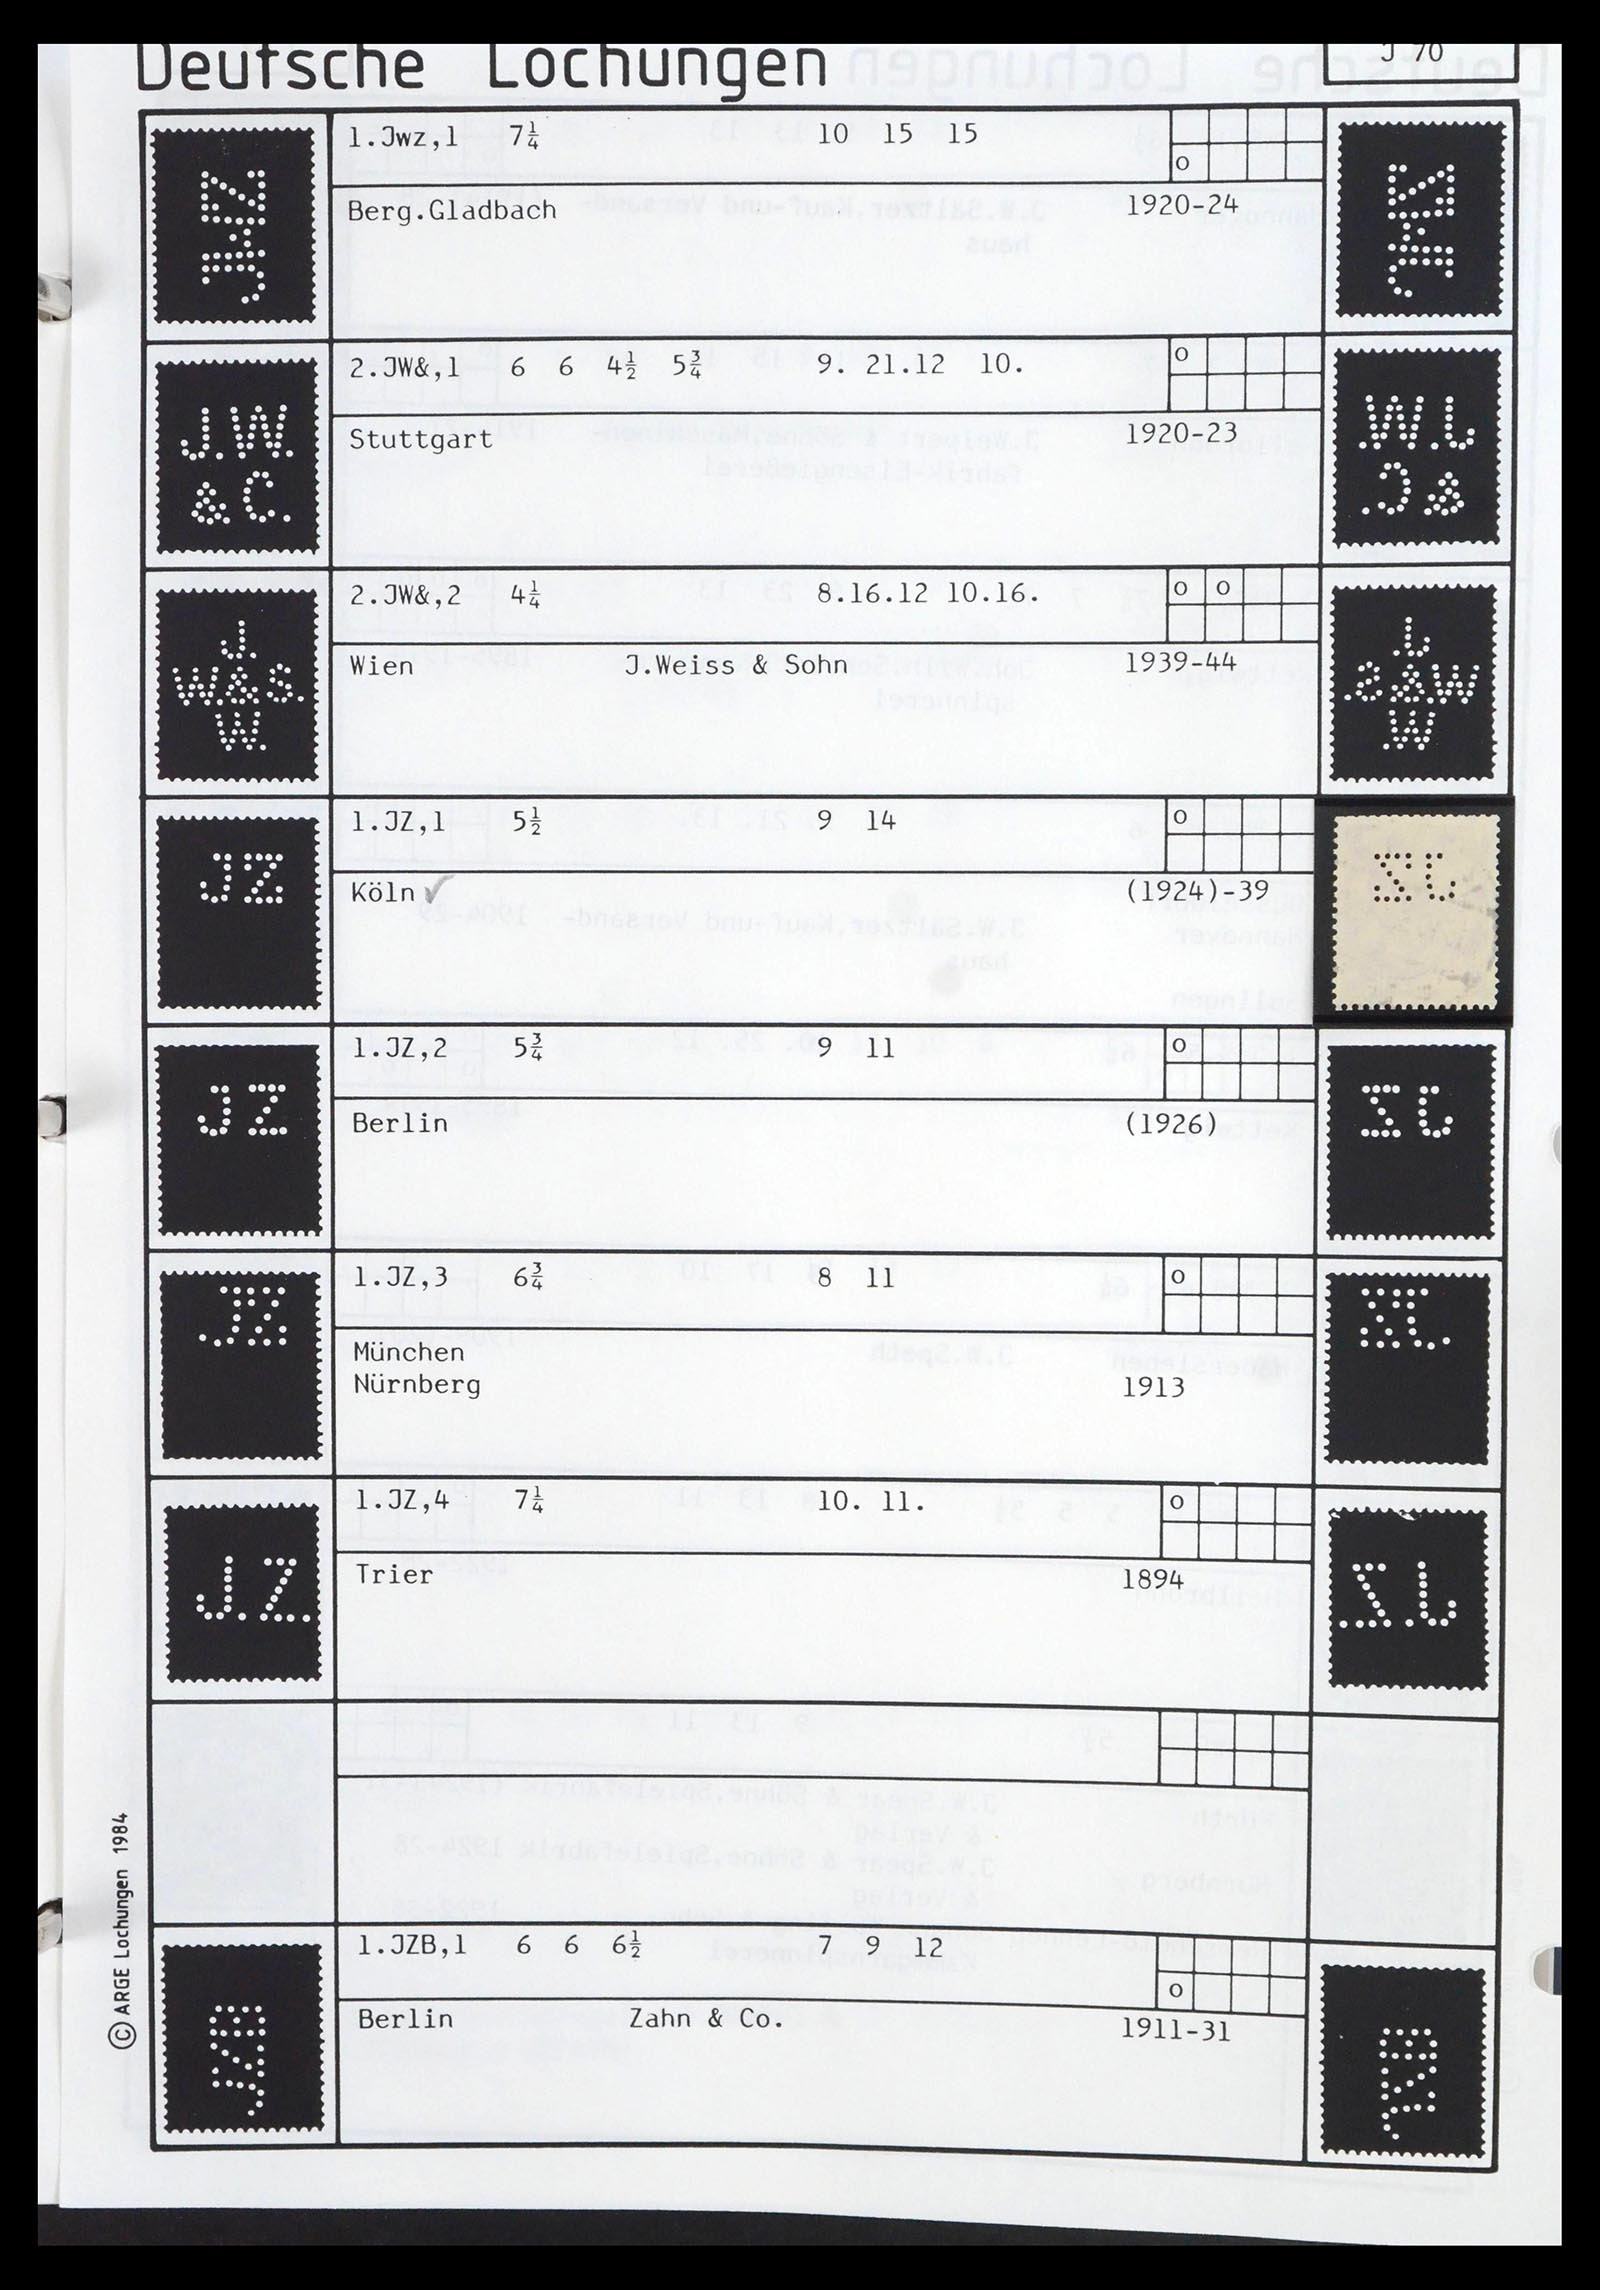 Deutsche Lochungen
J 70
1.Jwz,1 7¼ 10 15 15
o
Berg.Gladbach 1920-24
JWZ
2.JW&,1 6 6 4½ 5¾ 9. 21.12 10.
o
Stuttgart 1920-23
J.W.
&C.
2.JW&,2 4¼ 8.16.12 10.16.
o o
Wien J.Weiss & Sohn 1939-44
J.
W&S.
W.
1.JZ,1 5½ 9 14
o
Köln ✓ (1924)-39
JZ
1.JZ,2 5¾ 9 11
o
Berlin (1926)
JZ
1.JZ,3 6¾ 8 11
o
München
Nürnberg 1913
JZ
1.JZ,4 7¼ 10. 11.
o
Trier 1894
J.Z.
1.JZB,1 6 6 6½ 7 9 12
o
Berlin Zahn & Co. 1911-31
JZB
© ARGE Lochungen 1984